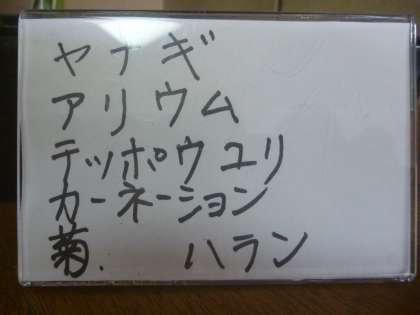 ヤナギ
アリウム
テッポウユリ
カーネーション
菊. ハラン